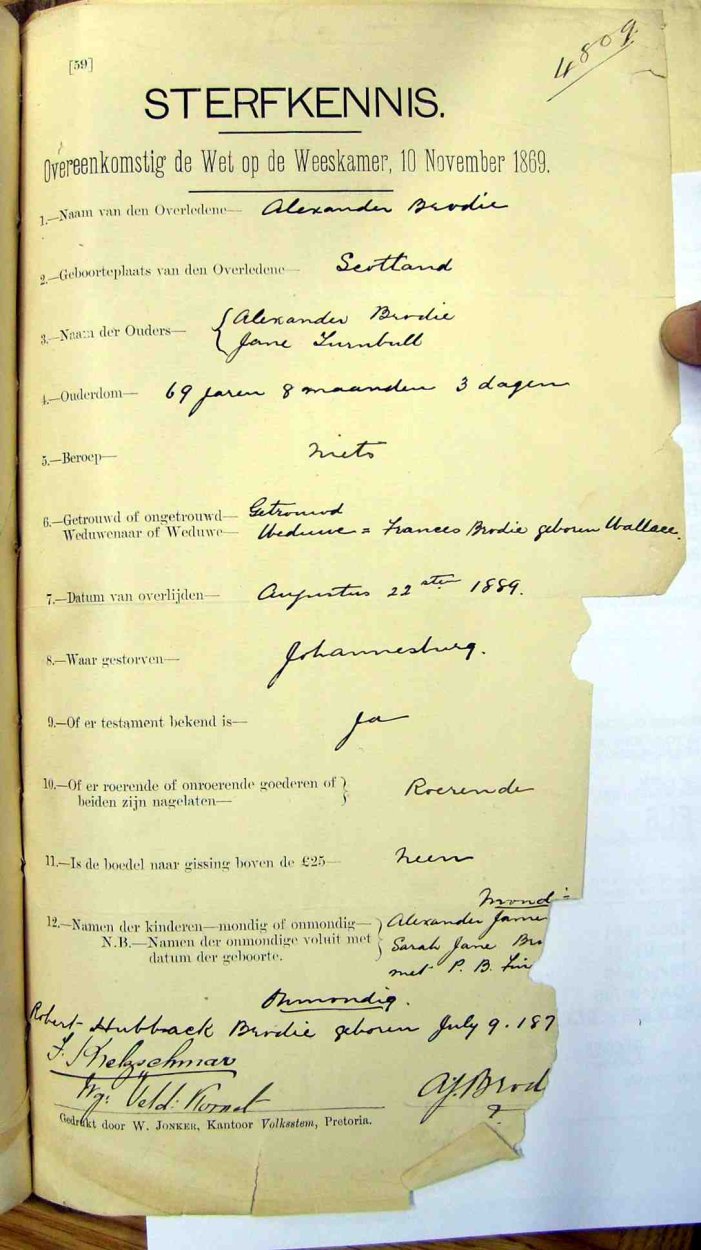 [59]
4809
STERFKENNIS.
Overeenkomstig de Wet op de Weeskamer, 10 November 1869.
1.—Naam van den Overledene— Alexander Brodie
2.—Geboorteplaats van den Overledene— Scotland
3.—Naam der Ouders— { Alexander Brodie
Jane Turnbull
4.—Ouderdom— 69 jaren 8 maanden 3 dagen
5.—Beroep— niets
6.—Getrouwd of ongetrouwd— Getrouwd
Weduwenaar of Weduwe— Weduwe = Frances Brodie geboren Wallace.
7.—Datum van overlijden— Augustus 22 ste 1889.
8.—Waar gestorven— Johannesburg.
9.—Of er testament bekend is— Ja
10.—Of er roerende of onroerende goederen of }
beiden zijn nagelaten— Roerende
11.—Is de boedel naar gissing boven de £25— neen
Mond:
12.—Namen der kinderen—mondig of onmondig— } Alexander Jame
N.B.—Namen der onmondige voluit met Sarah Jane Bro
datum der geboorte. met P. B.
Onmondig.
Robert Hubback Brodie geboren July 9. 187
F. Kretzschmar
Wg: Veld: Kornet A J. Brod
Gedrukt door W. JONKER, Kantoor Volksstem, Pretoria.